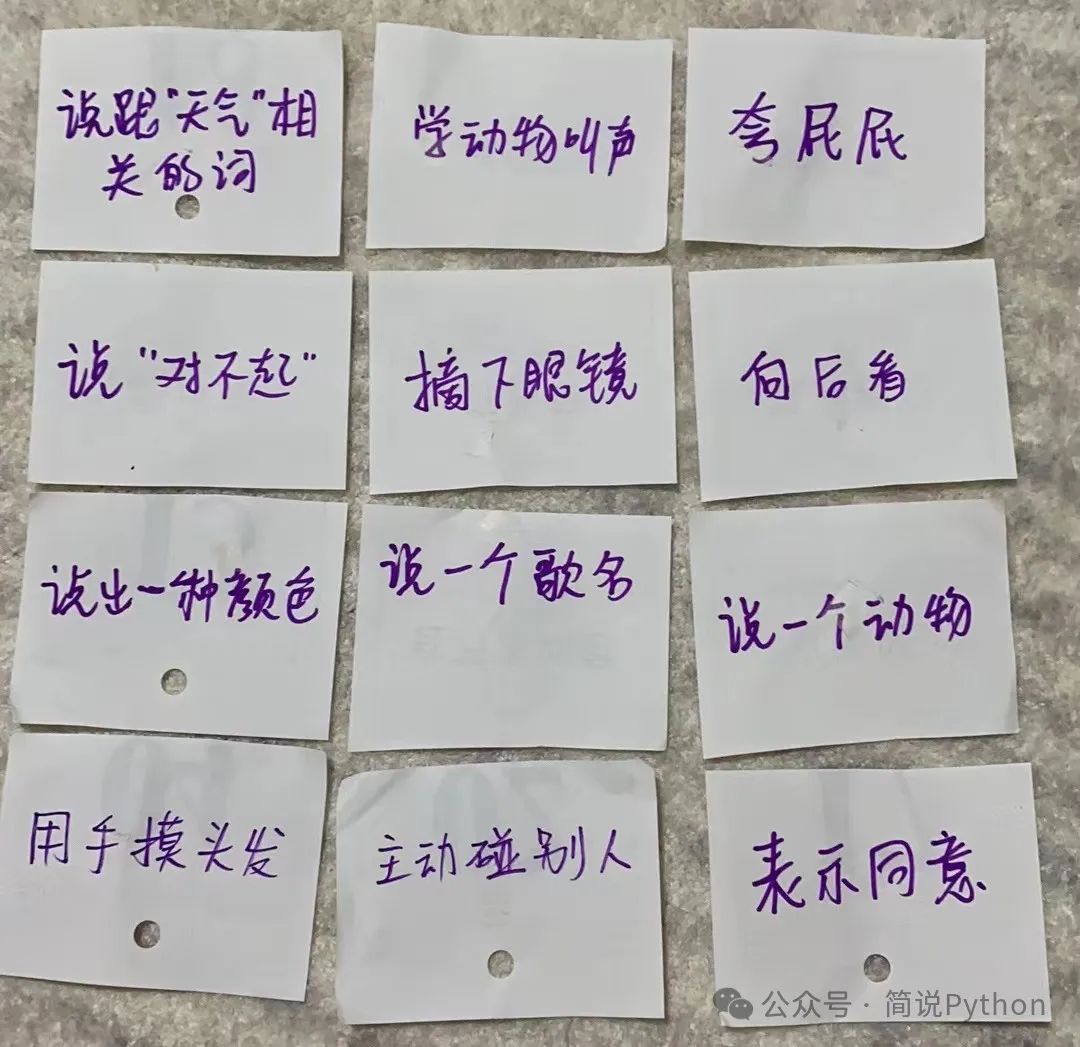 说跟"天气"相
关的词
学动物叫声
夸屁屁
说"对不起"
摘下眼镜
向后看
说出一种颜色
说一个歌名
说一个动物
用手摸头发
主动碰别人
表示同意
公众号·简说Python